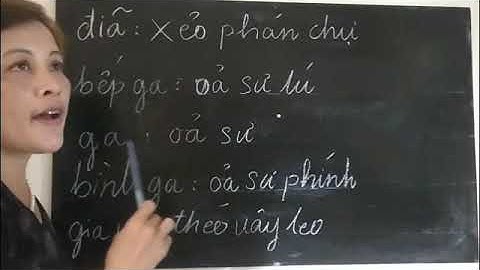 điã : xẻo phán chụi
bếp ga : oả sư lú
ga : oả sư
bình ga : oả sư phính
gia theó uây leo